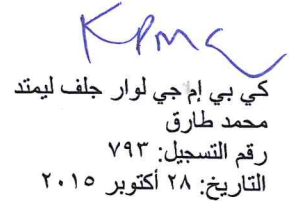 KPMG
كي بي إم جي لوار جلف ليمتد
محمد طارق
رقم التسجيل: ٧٩٣
التاريخ: ٢٨ أكتوبر ٢٠١٥